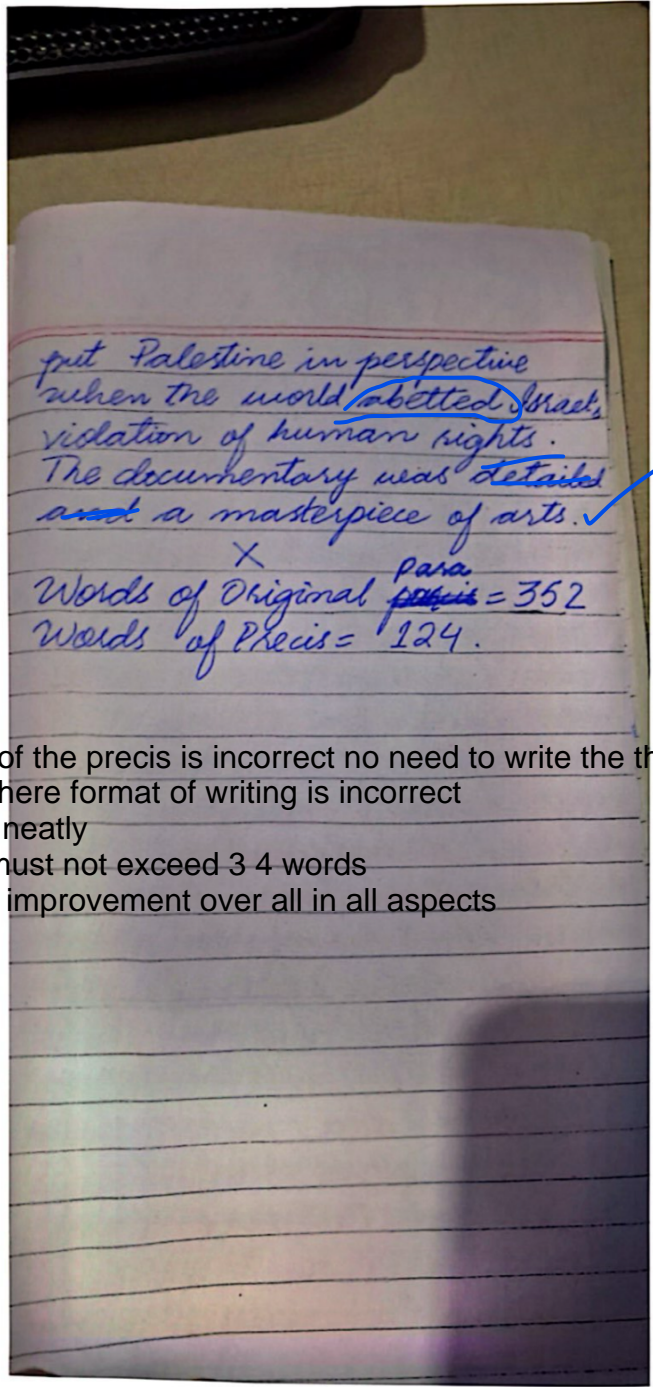 put Palestine in perspective
when the world abetted Israel's
violation of human rights.
The documentary was detailed
and a masterpiece of arts.
X
para
Words of Original = 352
Words of Precis = 124.
of the precis is incorrect no need to write the th
here format of writing is incorrect
neatly
must not exceed 3 4 words
improvement over all in all aspects